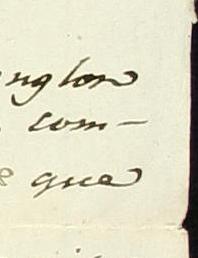 ngton
com-
e que